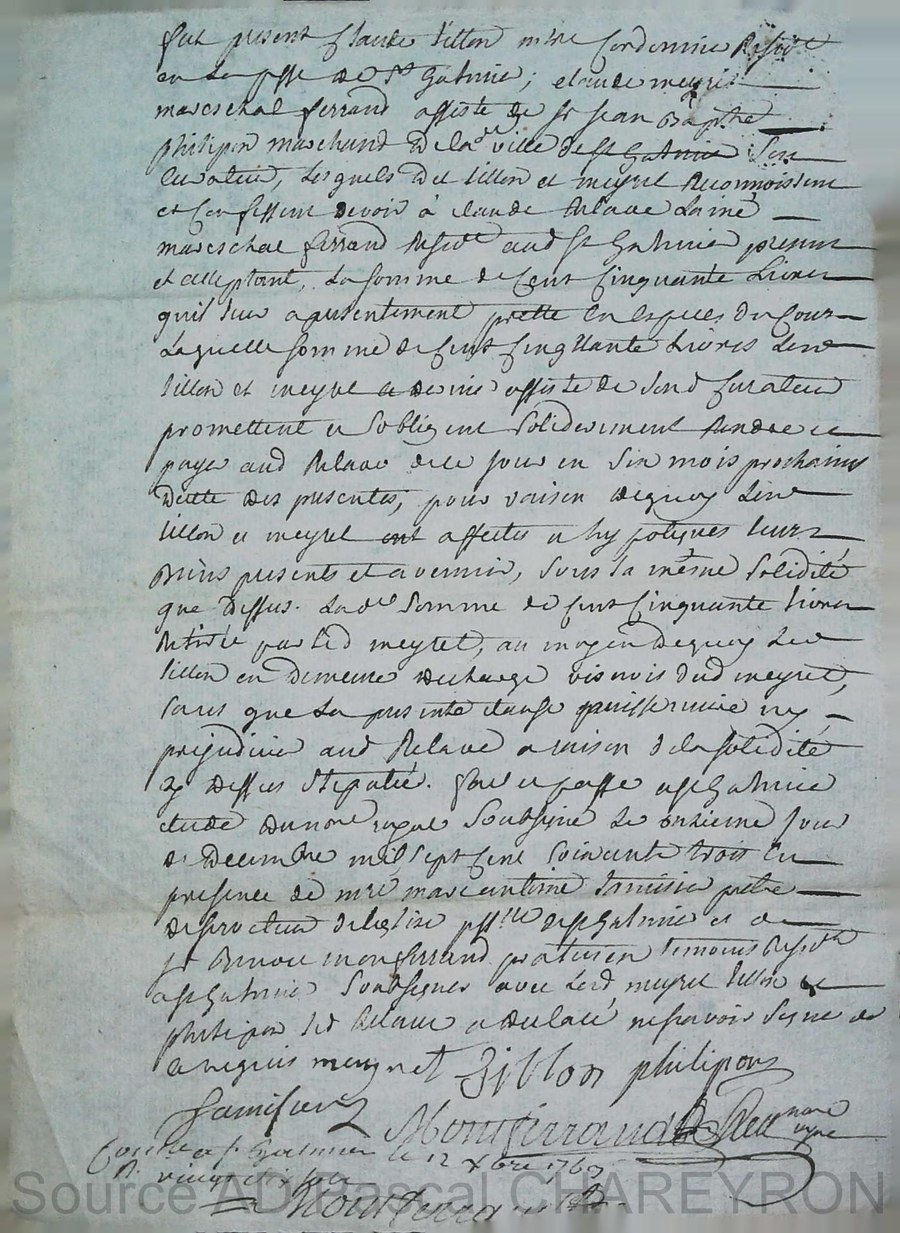 fut present Claude Zillon mtre Cordonnier Resid
en la psse de St Galmier; claude meyret
mareschal ferrand assisté de Sr Jean Baptte
philipon marchand de lad ville de St Galmier Son
Curateur, Lesquels dit Zillon et meyret Reconnoissent
et Confessent devoir à claude Relave Lainé
mareschal ferrand Reside aud St Galmier present
et acceptant, La somme de Cent Cinquante Livres
quil leur a presentement pretté En especes du Cours
Laquelle somme de Cent Cinquante Livres Lesd
Zillon et meyret assisté de Sond Curateur
promettent et Sobligent Solidairement Rendre et
payer aud Relave de ce jour en Six mois prochains
datte des presentes, pour raison dequoy Lesd
Zillon et meyret ont affectés et hypotiqués leurs
Biens presents et avennir, sous la même solidité
que dessus. Lade Somme de Cent Cinquante Livres
Retirée par led meyret, au moyen dequoy Led
Zillon en demeure dechargé vis avis dud meyret,
sans que La presente clause puisse nuire ny
prejudicier aud Relave a raison de la solidité
cy dessus stipulée. fait et passé a St Galmier
etude du nore royal Soubsigné Le onzieme jour
de Decembre mil sept cent soixante trois En
presence de mre marc antoine pretre
de leglise psslle de St Galmier et de
Sr monferrand praticien temoins Resids
a St Galmier Soubsignes avec Lesd meyret Zillon et
philipon led Relave a declaré ne scavoir signer de
ce requis meyret Zillon philipon
Montferrand nore
royal
a St Galmier le 12 xbre 1763
Montferrand
Source AD/Pascal CHAREYRON